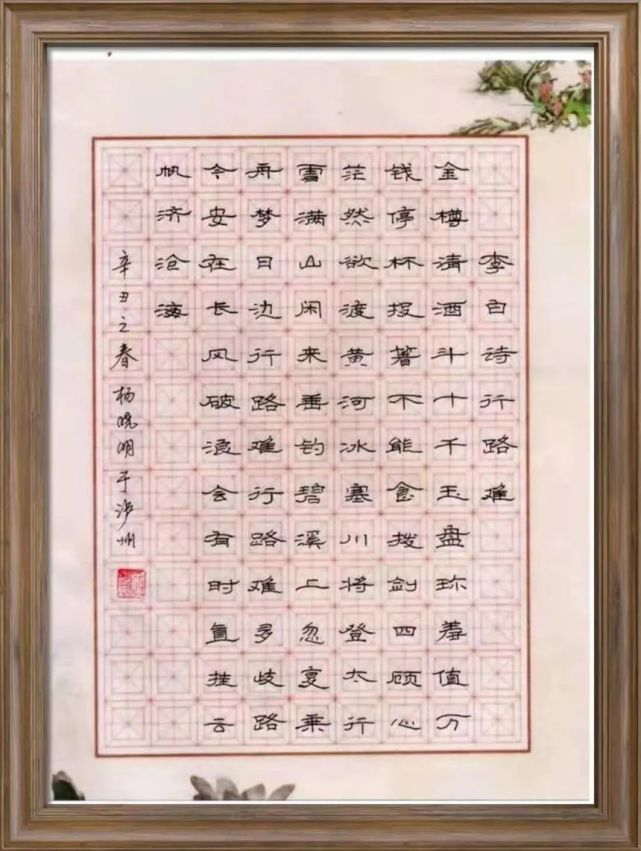 李白诗行路难
金樽清酒斗十千玉盘珍羞值万
钱停杯投箸不能食拔剑四顾心
茫然欲渡黄河冰塞川将登太行
雪满山闲来垂钓碧溪上忽复乘
舟梦日边行路难行路难多歧路
今安在长风破浪会有时直挂云
帆济沧海
辛丑之春杨晓明于泸州